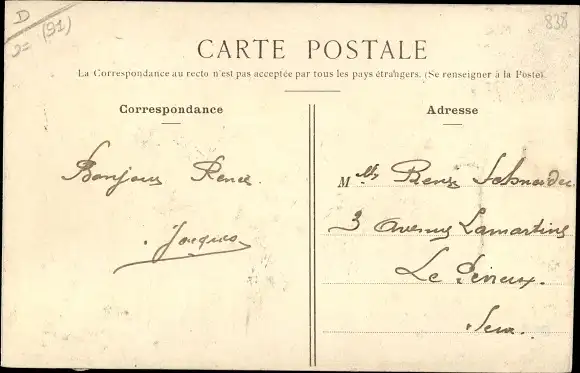 D
2= (91)
838
CARTE POSTALE
La Correspondance au recto n'est pas acceptée par tous les pays étrangers. (Se renseigner à la Poste).
Correspondance
Bonjour Renée.
Jacques
Adresse
Mlle Renée
3 avenue Lamartine
Le